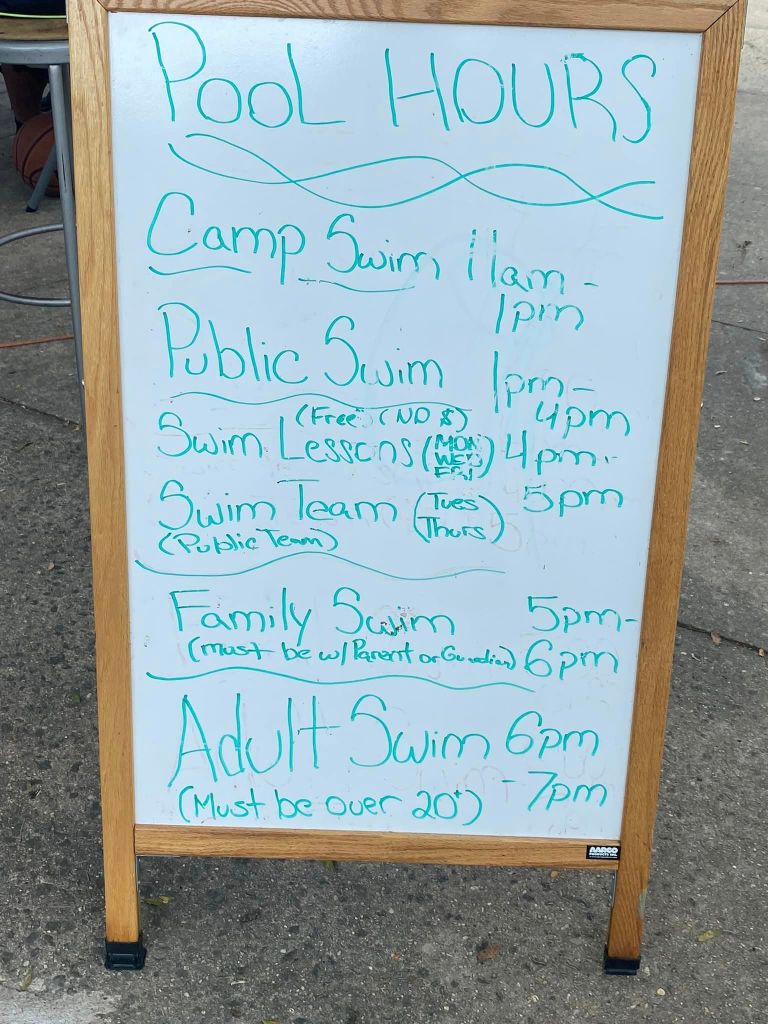 POOL HOURS
Camp Swim 11am -
1pm
Public Swim 1pm -
4pm
(Free) (NO $)
Swim Lessons (MON WED FRI) 4pm -
5pm
Swim Team (Tues Thurs)
(Public Team)
Family Swim 5pm -
(must be w/ Parent or Guardian) 6pm
Adult Swim 6pm
(Must be over 20+) - 7pm
AARCO
PRODUCTS INC.